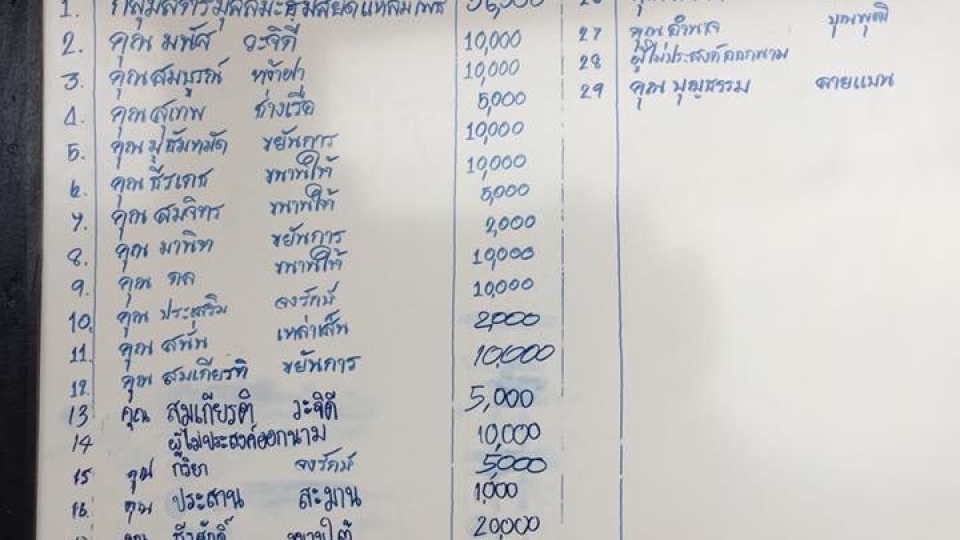 1.
2. คุณ มนัส วะจิดี 10,000
3. คุณสมบูรณ์ 10,000
4. คุณสุเทพ ช่างเรือ 5,000
5. คุณ ขยันการ 10,000
6. คุณ ธีรเดช ขนานใต้ 10,000
7. คุณ สมจิตร ขนานใต้ 5,000
8. คุณ มานิท ขยันการ 2,000
9. คุณ ดล ขนานใต้ 10,000
10. คุณ ประเสริม จงรักษ์ 10,000
11. คุณ สนั่น เหล่าเส็น 2,000
12. คุณ สมเกียรติ ขยันการ 10,000
13 คุณ สมเกียรติ วะจิดี 5,000
14 ผู้ไม่ประสงค์ออกนาม 10,000
15 คุณ กวิยา จงรักษ์ 5,000
16. คุณ ประสาน สะมาน 1,000
คุณ ธีรศักดิ์ ขนานใต้ 20,000
27 คุณ อำนาจ
28 ผู้ไม่ประสงค์ออกนาม
29 คุณ บุญธรรม